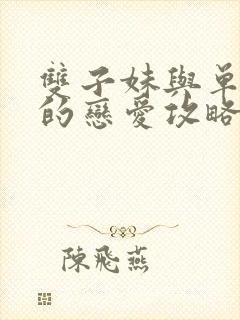 雙子妹與單
的戀愛攻略
陳飛燕